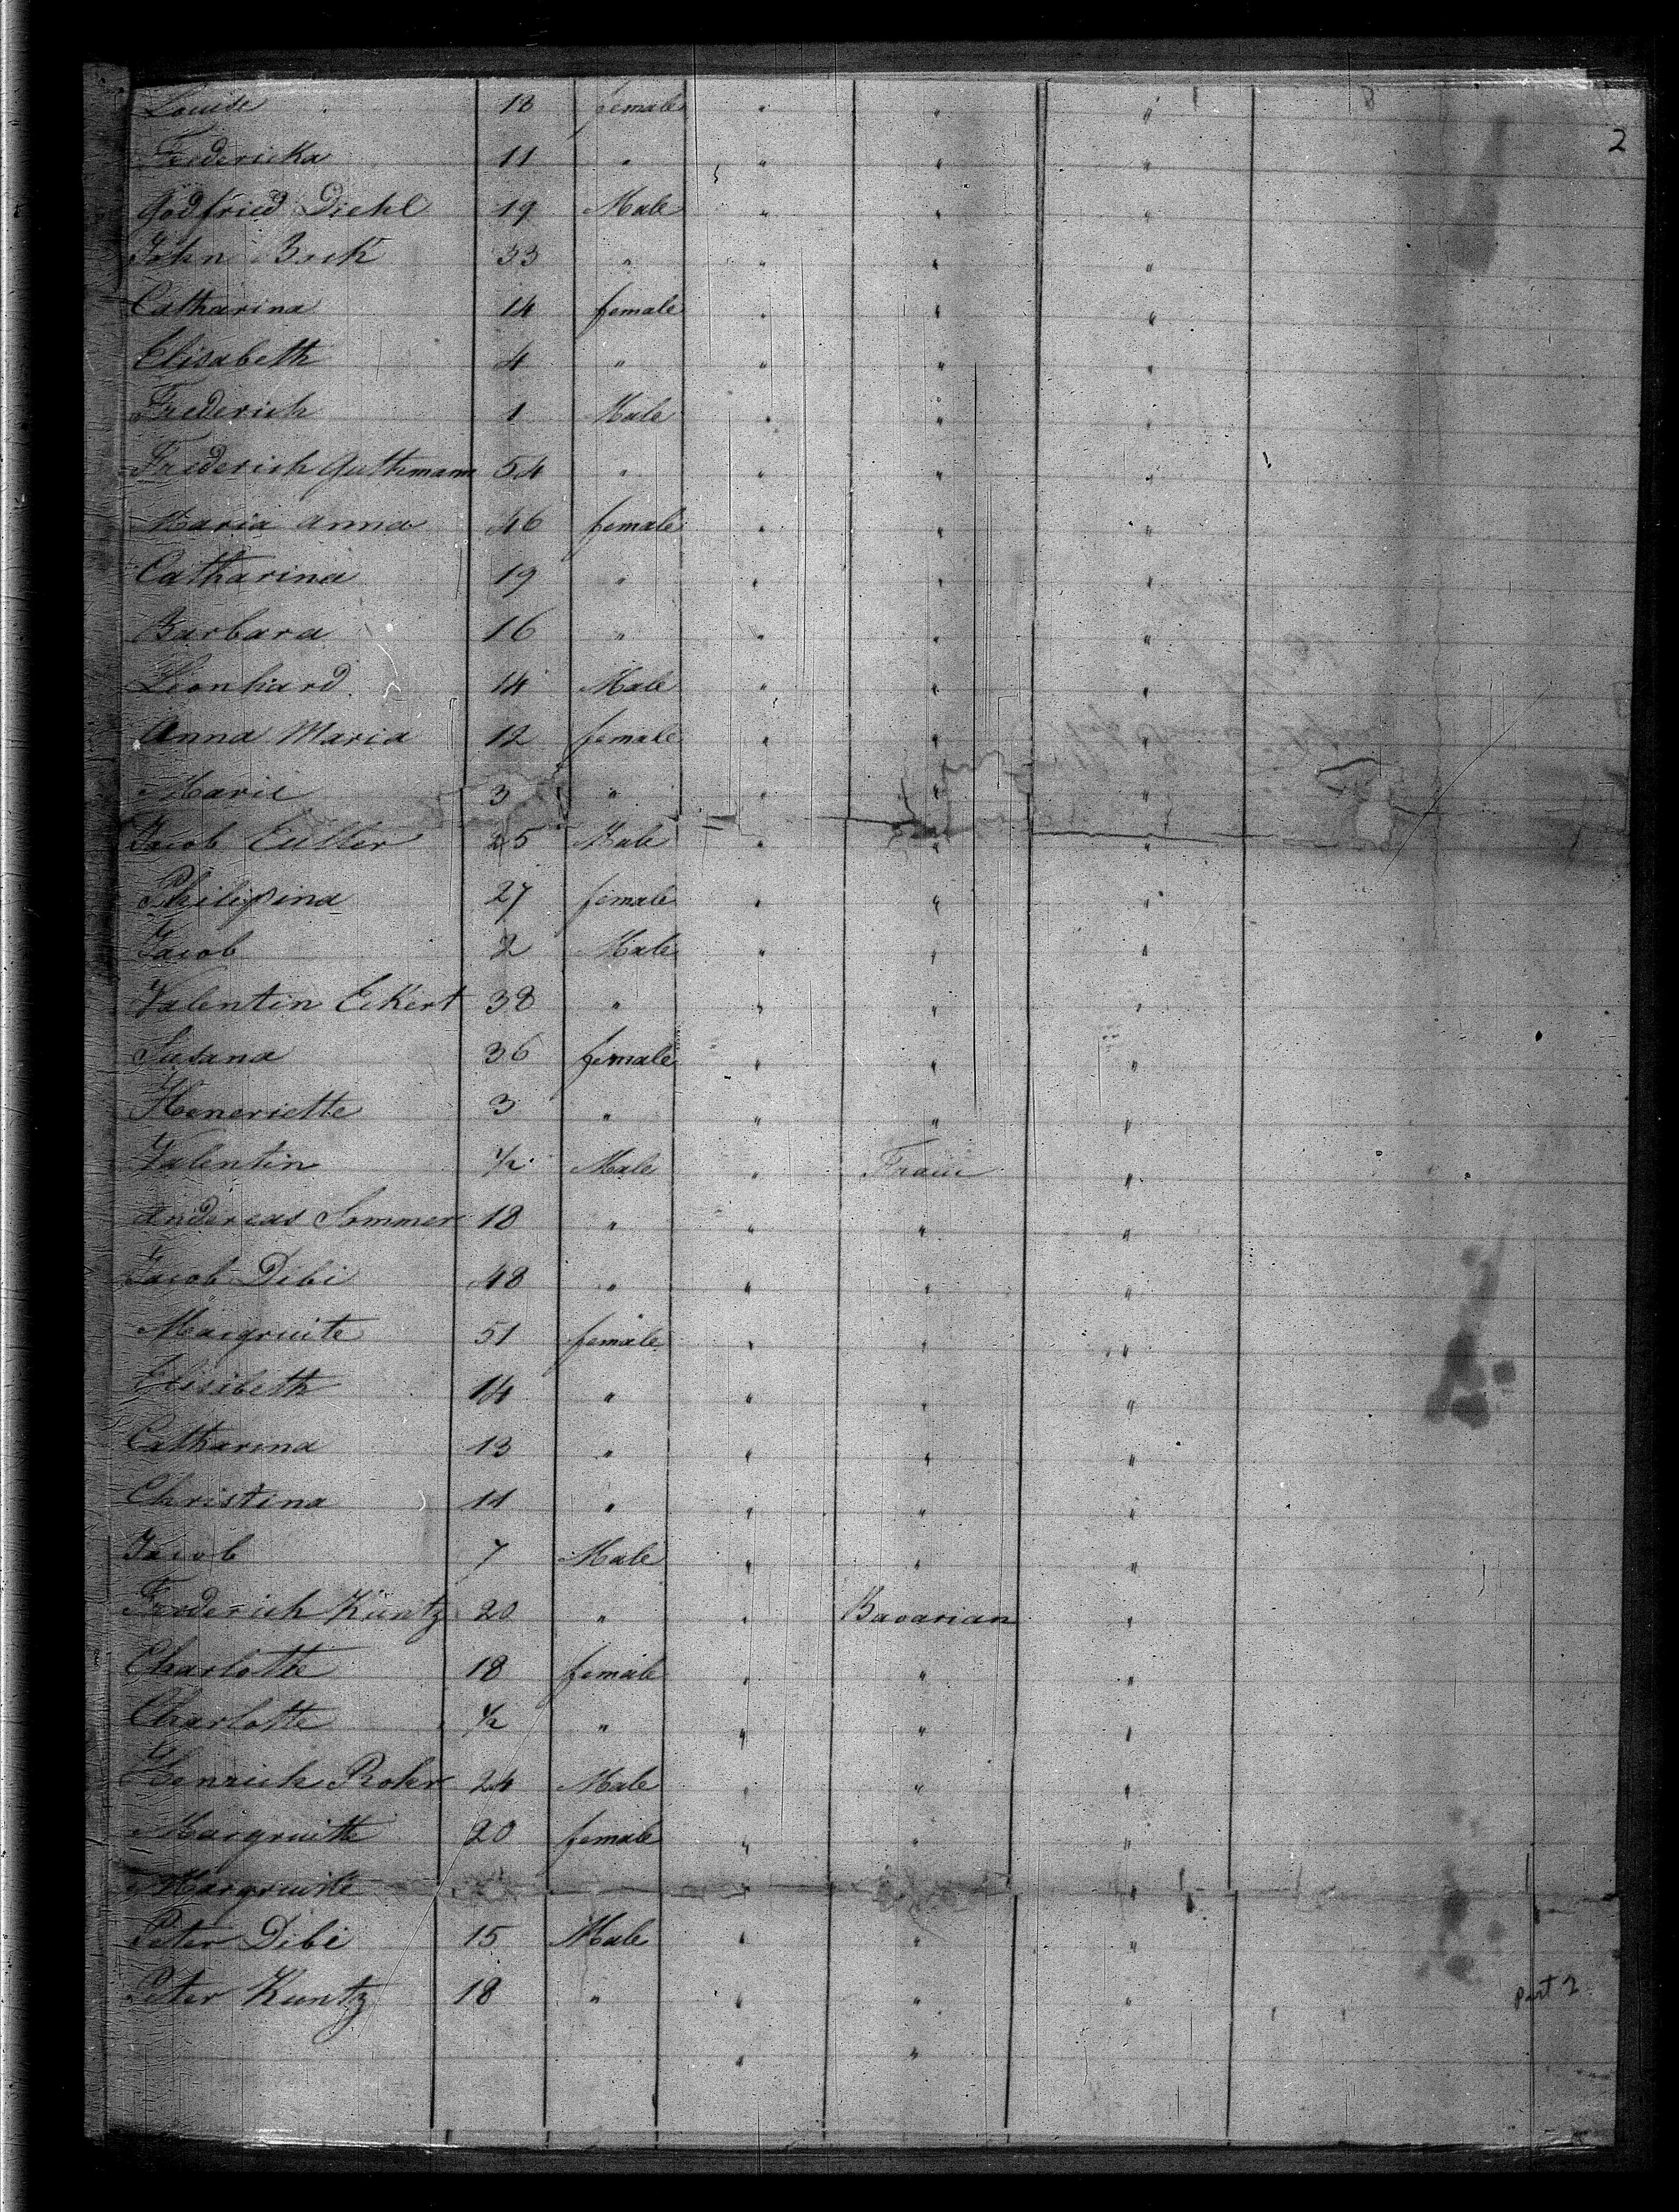 2
Louise 18 female " " "
Fredericka 11 " " " "
Godfried Diehl 19 Male " " "
John Beck 33 " " " "
Catharina 14 female " " "
Elisabeth 4 " " " "
Frederich 1 Male " " "
Frederich Guthmann 54 " " " "
Maria Anna 46 female " " "
Catharina 19 " " " "
Barbara 16 " " " "
Leonhard 14 Male " " "
Anna Maria 12 female " " "
Marie 3 " " " "
Jacob Euller 25 Male " " "
Philipina 27 female " " "
Jacob 2 Male " " "
Valentin Eckert 38 " " " "
Susana 36 female " " "
Heneriette 3 " " " "
Valentin 1/2 Male " Franc "
Andereas Sommer 18 " " " "
Jacob Debi 48 " " " "
Margruite 51 female " " "
Elisibeth 14 " " " "
Catharina 13 " " " "
Christina 11 " " " "
Jacob 7 Male " " "
Frederich Kuntz 20 " " Bavarian "
Charlotte 18 female " " "
Charlotte 1/2 " " " "
Henrich Rohr 24 Male " " "
Margruitte 20 female " " "
Margruitte " " "
Peter Debi 15 Male " " "
Peter Kuntz 18 " " " "
part 2
" "